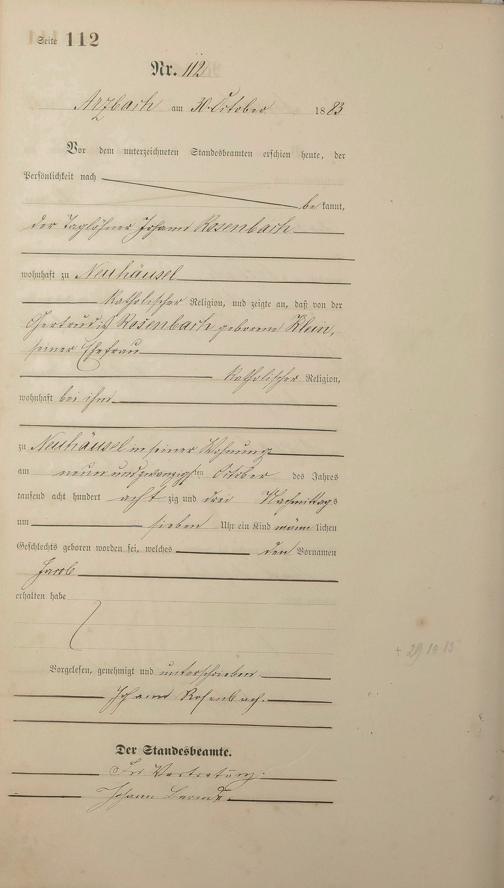 Seite 112
Nr. 112
Arzbach am 30. October 1883
Vor dem unterzeichneten Standesbeamten erschien heute, der
Persönlichkeit nach
bekannt,
der Taglöhner Johann Rosenbach
wohnhaft zu Neuhäusel
katholischer Religion, und zeigte an, daß von der
Gertrudis Rosenbach geborene Klein,
seiner Ehefrau
katholischer Religion,
wohnhaft bei ihm
zu Neuhäusel in seiner Wohnung
am neunundzwanzigsten October des Jahres
tausend acht hundert achtzig und drei Nachmittags
um sieben Uhr ein Kind männlichen
Geschlechts geboren worden sei, welches den Vornamen
Jacob
erhalten habe
Vorgelesen, genehmigt und unterschrieben
Johann Rosenbach.
Der Standesbeamte.
In Vertretung.
Johann